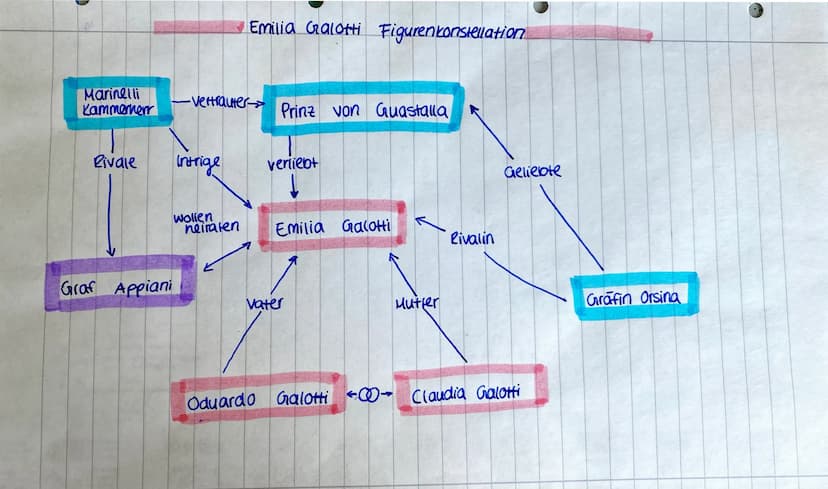 Emilia Galotti Figurenkonstellation
Marinelli
Kammerherr
Vertrauter
Prinz von Guastalla
Rivale
Intrige
verliebt
Geliebte
wollen
heiraten
Emilia Galotti
Rivalin
Graf Appiani
Gräfin Orsina
Vater
Mutter
Oduardo Galotti
Claudia Galotti